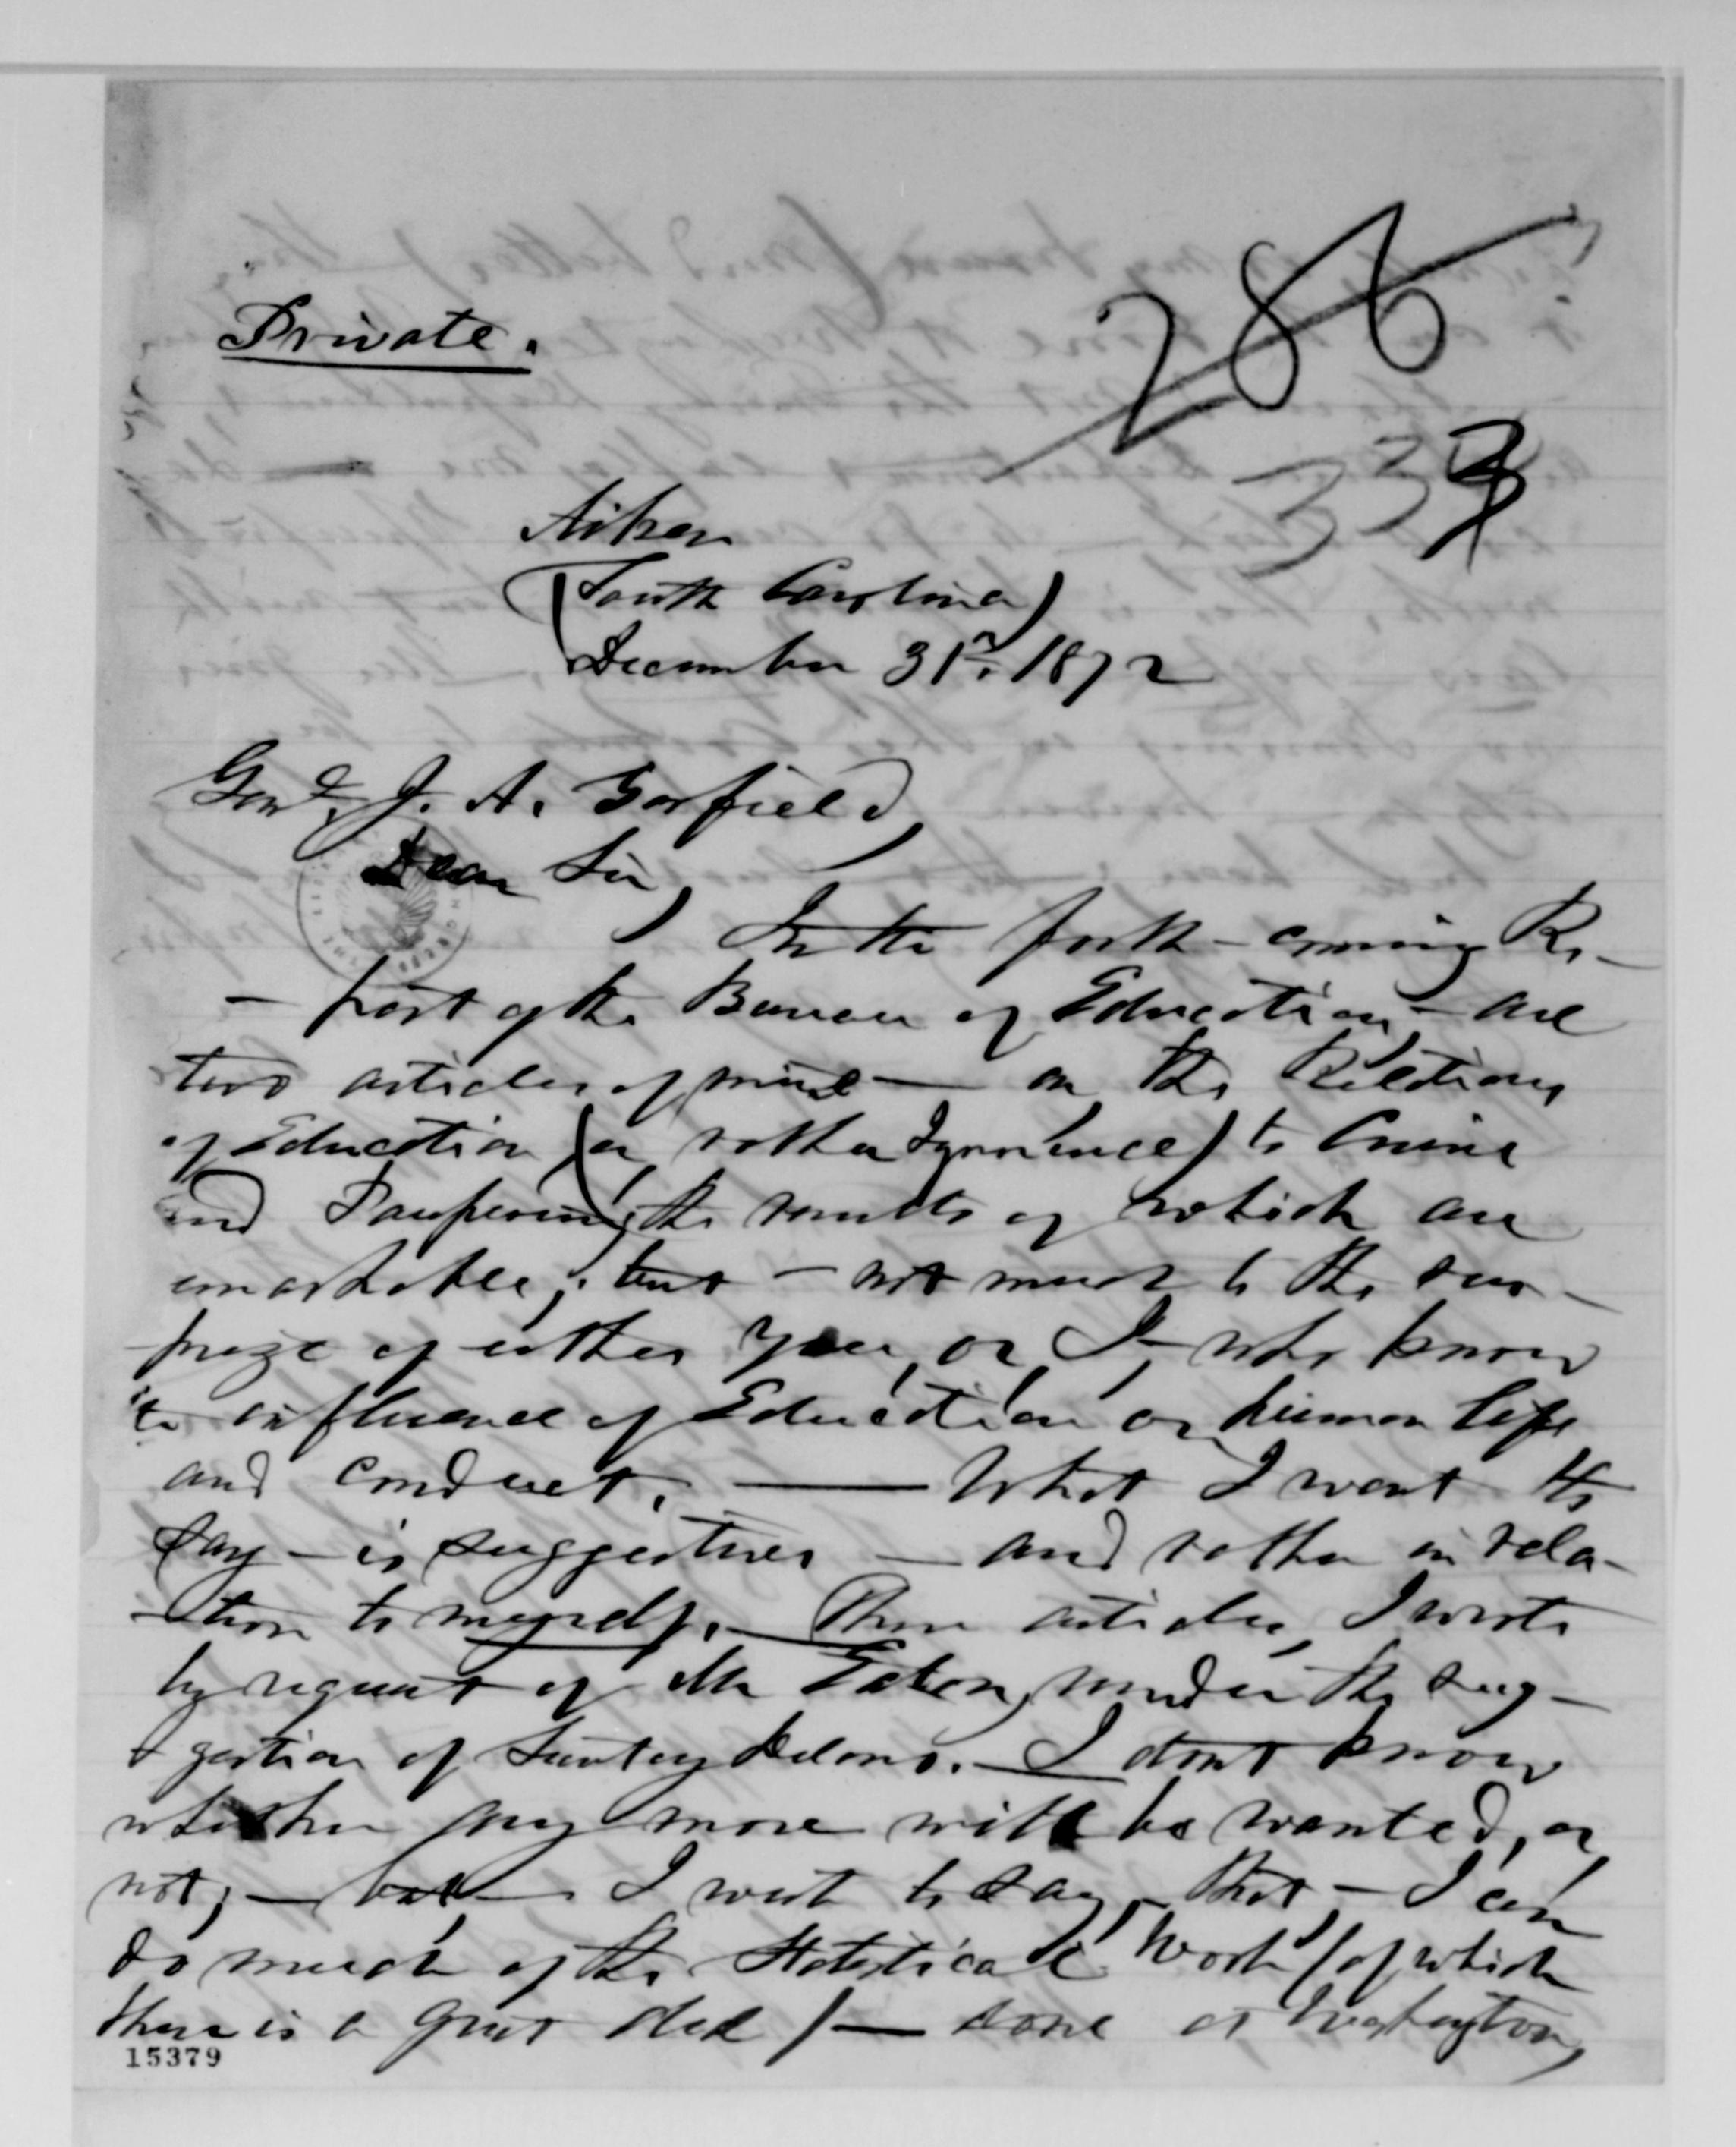 286
333
Private.
Aiken
(South Carolina)
December 31st. 1872
Genl. J. A. Garfield,
Dear Sir,
In the forth-coming Re-
-port of the Bureau of Education, - are
two articles of mine — on the Relations
of Education (or, rather Ignorance) to Crime
and Pauperism, the results of which are
remarkable; but - not much to the sur-
prize of either you, or I, who know
the influence of Education on human life
and conduct. — What I want to
say - is suggestive — and rather in rela-
-tion to myself. — These articles, I wrote
by request of Mr Eaton, under the sug-
-gestion of Delano. — I dont know
whether any more will be wanted, or
not; — but — I want to say, - that - I can
do much of the Statistical work (of which
there is a great deal) — done at Washington,
15379